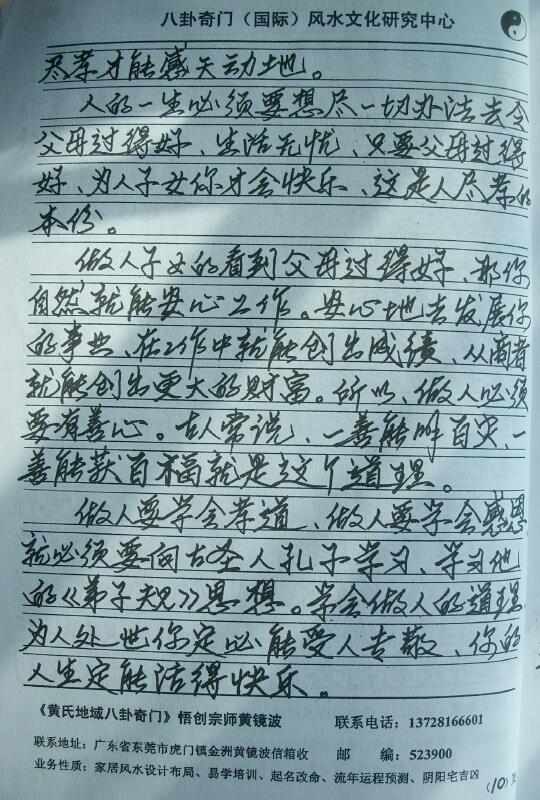 八卦奇门（国际）风水文化研究中心
尽孝才能感天动地。
人的一生必须要想尽一切办法去令
父母过得好、生活无忧、只要父母过得
好、为人子女你才会快乐、这是人尽孝的
本份。
做人子女的看到父母过得好、那你
自然就能安心工作。安心地去发展你
的事业、在工作中就能创出成绩、从商者
就能创出更大的财富。所以、做人必须
要有善心。古人常说、一善能解百灾、一
善能获百福就是这个道理。
做人要学会孝道、做人要学会感恩
就必须要向古圣人孔子学习、学习他
的《弟子规》思想。学会做人的道理
为人处世你定必能受人尊敬、你的
人生定能活得快乐。
《黄氏地域八卦奇门》悟创宗师黄镜波 联系电话：13728166601
联系地址：广东省东莞市虎门镇金洲黄镜波信箱收 邮 编：523900
业务性质：家居风水设计布局、易学培训、起名改命、流年运程预测、阴阳宅吉凶
(10)页